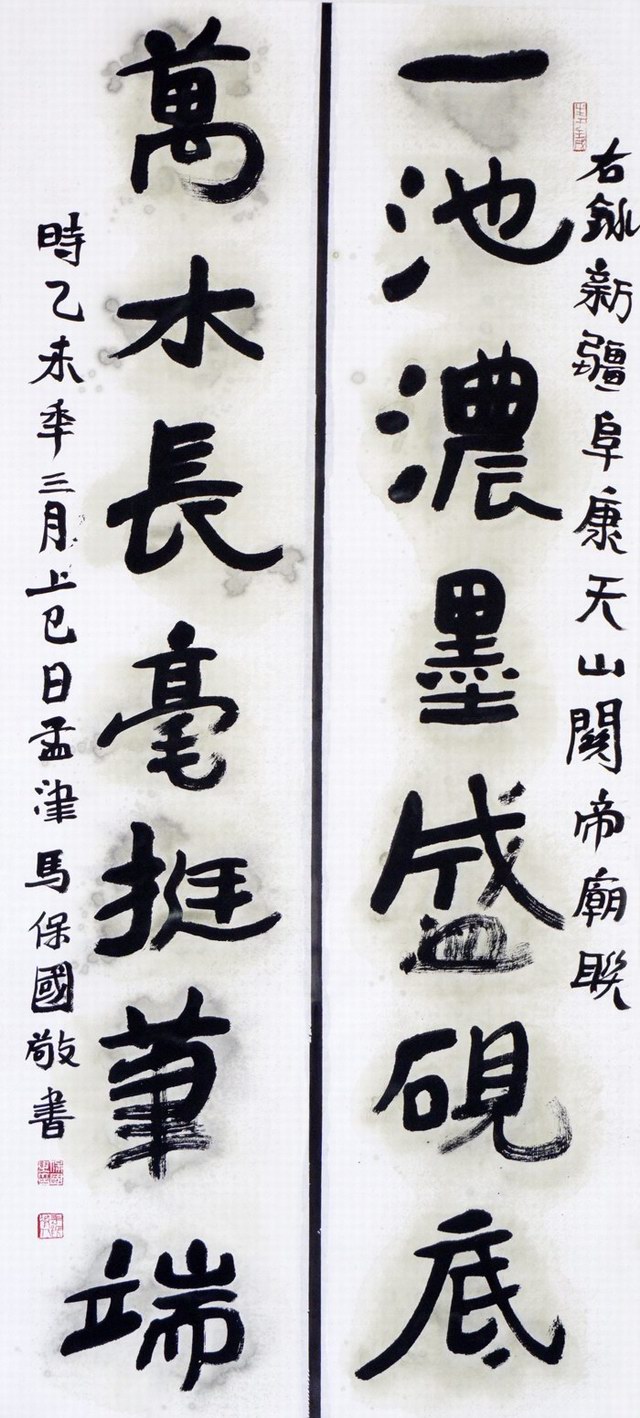 右錄新疆阜康天山關帝廟聯
一池濃墨盛硯底
萬水長毫挺筆端
時乙未年三月上巳日孟津馬保國敬書